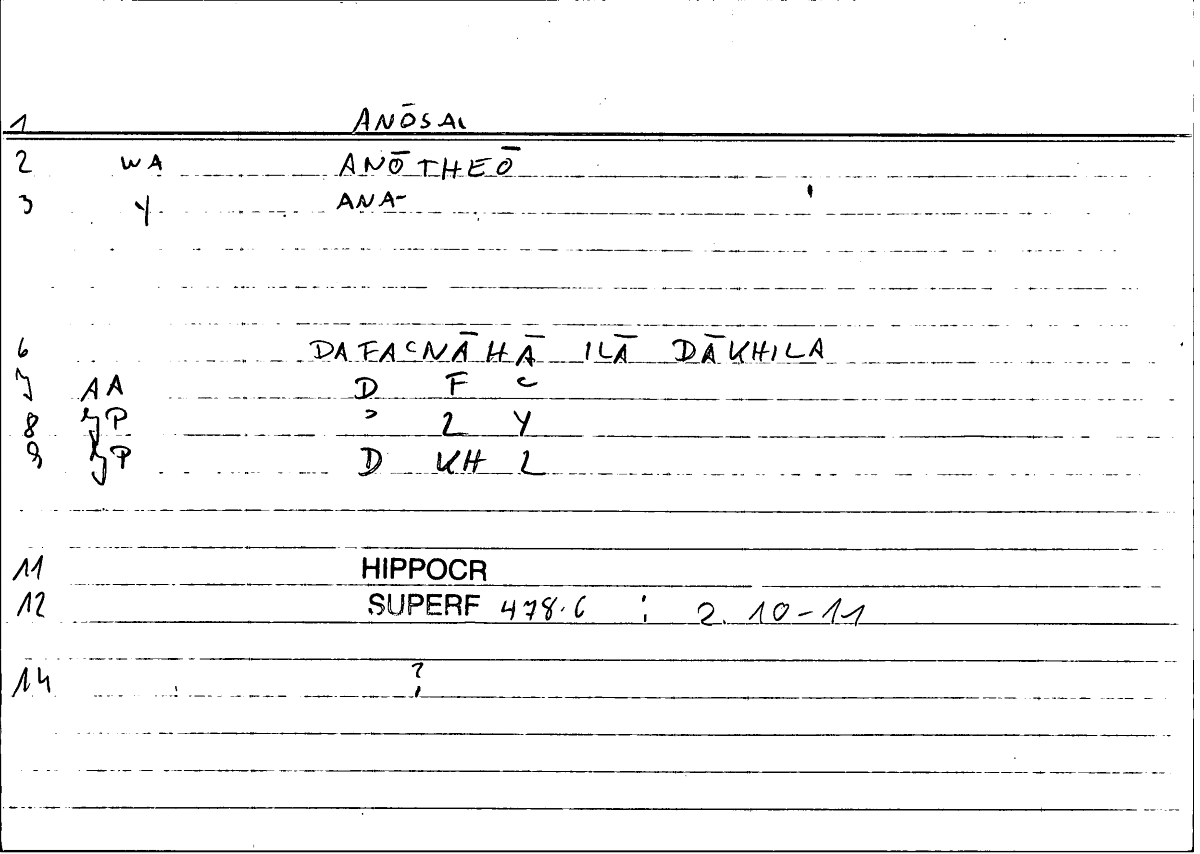 1 ANŌSAI
2 WA ANŌTHEŌ
3 Y ANA-
6 DAFAʿNĀHĀ ILĀ DĀKHILA
7 AA D F ʿ
8 YP ʾ L Y
9 YP D KH L
11 HIPPOCR
12 SUPERF 478.6 : 2.10-11
14 ?